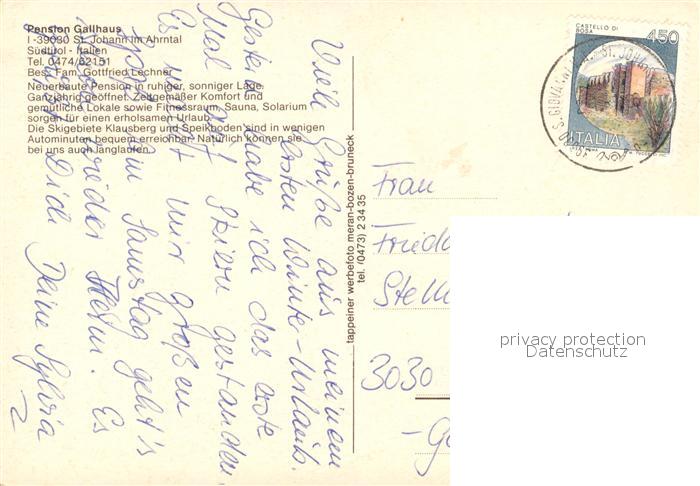 Pension Gallhaus
I -39030 St. Johann im Ahrntal
Südtirol - Italien
Tel. 0474/62151
Bes. Fam. Gottfried Lechner
Neuerbaute Pension in ruhiger, sonniger Lage.
Ganzjährig geöffnet. Zeitgemäßer Komfort und
gemütliche Lokale sowie Fitnessraum, Sauna, Solarium
sorgen für einen erholsamen Urlaub.
Die Skigebiete Klausberg und Speikboden sind in wenigen
Autominuten bequem erreichbar. Natürlich können sie
bei uns auch langlaufen.
Viele Grüße aus meinem
ersten Winter-Urlaub.
Gestern habe ich das erste
Mal auf Skiern gestanden
Es macht mir großen
Spaß. Am Samstag geht's
wieder Heim. Es
grüßt Dich Deine Sylvia
tappeiner werbefoto meran-bozen-bruneck
tel. (0473) 2 34 35
CASTELLO DI
BOSA
450
ITALIA
Frau
Frieda
Stell
3030
-G
privacy protection
Datenschutz